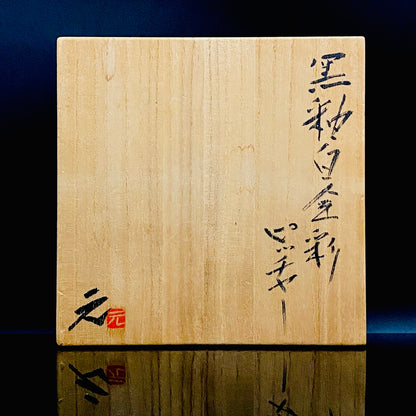 黒釉白金彩
ピッチャー
元
元